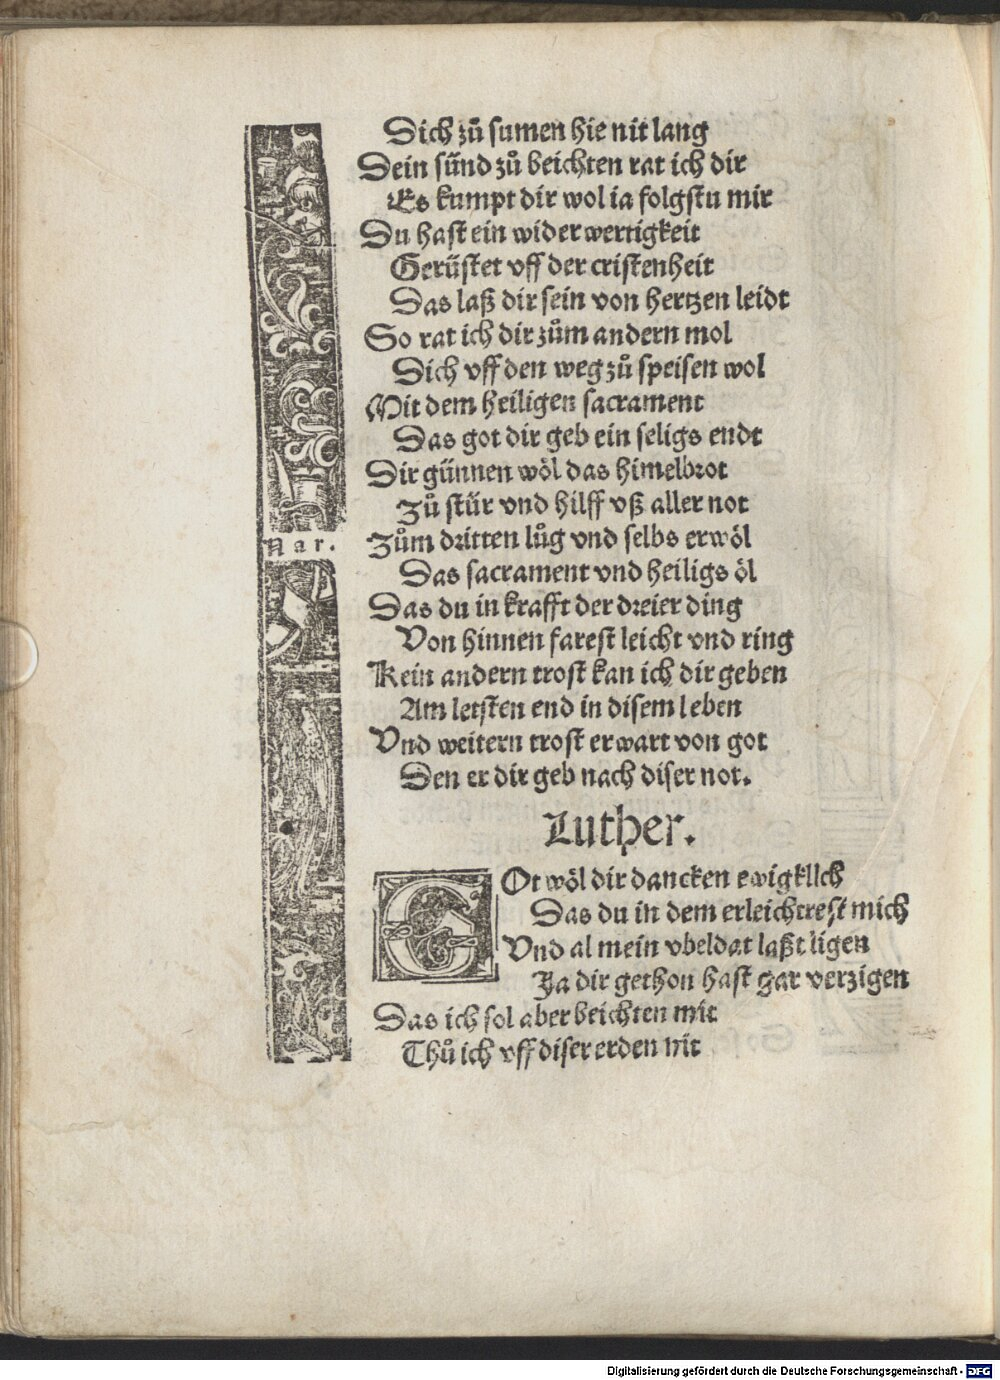 Dich zů sumen hie nit lang
Dein sünd zů beichten rat ich dir
Es kumpt dir wol ia folgstu mir
Du hast ein wider wertigkeit
Gerüstet vff der cristenheit
Das laß dir sein von hertzen leidt
So rat ich dir zům andern mol
Dich vff den weg zů speisen wol
Mit dem heiligen sacrament
Das got dir geb ein seligs endt
Dir günnen wöl das himelbrot
Zů stür vnd hilff vß aller not
Nar.
Zům dritten lůg vnd selbs erwöl
Das sacrament vnd heiligs öl
Das du in krafft der dreier ding
Von hinnen farest leicht vnd ring
Kein andern trost kan ich dir geben
Am letsten end in disem leben
Vnd weitern trost erwart von got
Den er dir geb nach diser not.
Luther.
GOt wöl dir dancken ewigklich
Das du in dem erleichtrest mich
Vnd al mein vbeldat laßt ligen
Ja dir gethon hast gar verzigen
Das ich sol aber beichten mit
Thů ich vff diser erden nit
Digitalisierung gefördert durch die Deutsche Forschungsgemeinschaft - DFG